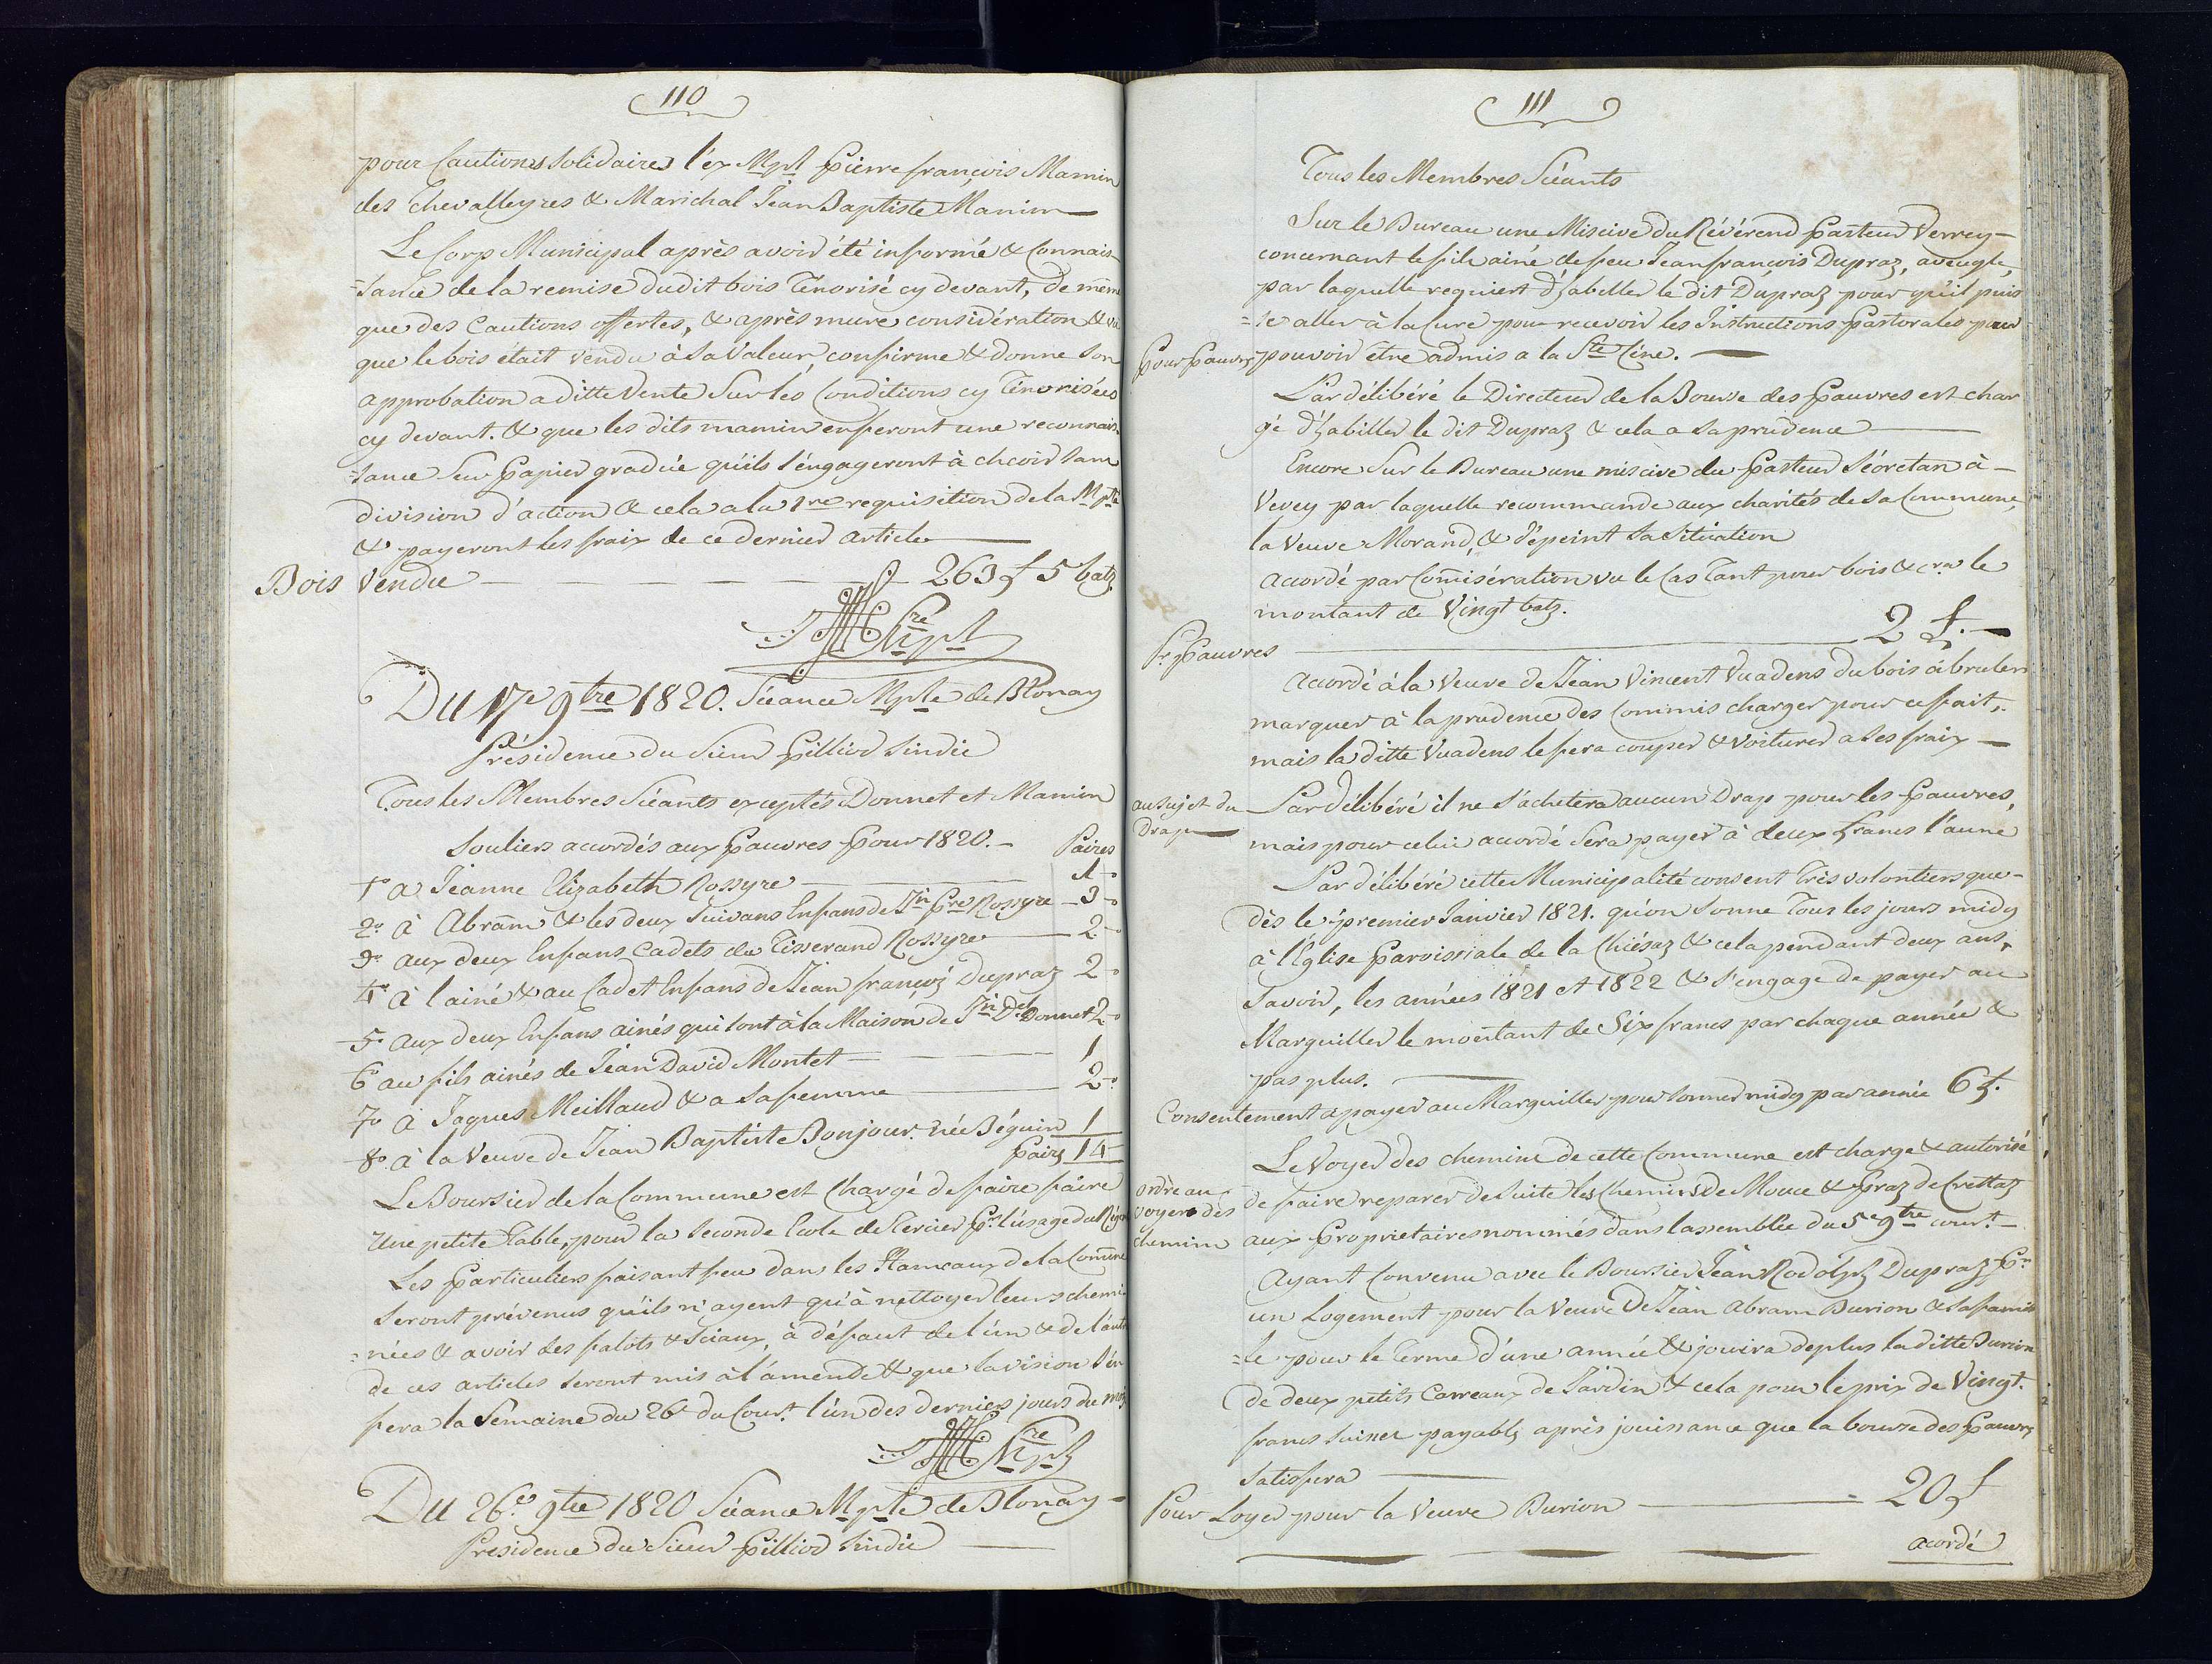 110
pour Cautions Solidaires l'ex Mpl Pierre françois Mamin
des Chevalleyres & Marichal Jean Baptiste Mamin
Le Corp Municipal après avoir été informé & Connais-
=sance de la remise dudit bois Ténorisé cy devant, de même
que des Cautions offertes, & après mure considération & vu
que le bois était vendu à Sa Valeur, confirme & donne Son
approbation a ditte Vente Sur les Conditions cy Ténorisées
cy devant. & que les dits mamin enferont une reconnais-
=sance Sur Papier graduée qu'ils s'engageront à chcoir sans
division d'action & cela a la 1re requisition de la Mpte
& payeront les fraix de ce dernier article
Bois Vendu 263 f 5 batz.
Sre Mpl
Du 17e 9bre 1820. Séance Mple de Blonay
Présidence du Sieur Pilliod Sindic
Tous les Membres Séants exceptés Donnet et Mamin
Souliers accordés aux Pauvres Pour 1820. - Paires
1o a Jeanne Elizabeth Rossyre 1 -
2o à Abram & les deux Suivans Enfans de Jn Pre Rossyre - 3 -
3o aux deux Enfans Cadets du Tisserand Rossyre 2 -
4o à l'ainé & au Cadet Enfans de Jean françoi Dupraz 2 -
5o aux deux Enfans ainés qui sont à la Maison de Jn Dd Donnet 2 -
6o au fils ainés de Jean David Montet 1
7o à Jaques Meillaud & a Sa femme 2 -
8o à la Veuve de Jean Baptiste Bonjour née Béguin 1
Paires 14
Le Boursier de la Commune est Chargé de faire faire
une petite Table, pour la Seconde Ecole de Tercier Pr l'usage du Régent
Les Particuliers faisant feu dans les Hameaux de la Comune
Seront prévenus qu'ils n'ayent qu'à nettoyer leurs chemi-
=nées & avoir des falots & Sciaux, à défaut de l'un & de l'autre
de ces articles Seront mis à l'amende & que la vision S'en
fera la Semaine du 26e du Court. l'un des derniers jours du mois
Sre Mpl
Du 26.e 9bre 1820 Séance Mple de Blonay -
Présidence du Sieur Pilliod Sindic
111
Tous les Membres Séants
Sur le Bureau une Miscive du Révérend Pasteur Verrey -
concernant le fils ainé de feu Jean françois Dupraz, aveugle,
par laquelle requiert d'habiller le dit Dupraz pour qu'il puis
=se aller à la Cure pour recevoir les Instructions Pastorales pour
Pour Pauvres pouvoir être admis a la Ste Cène.
Par délibéré le Directeur de la Bourse des Pauvres est char
gé d'habiller le dit Dupraz & cela a Sa prudence
Encore Sur le Bureau une miscive du Pasteur Sécretan à -
Vevey par laquelle recommande aux charités de Sa Commune,
la Veuve Morand, & dépeint Sa Situation
Accordé par Comisération vu le Cas Tant pour bois & cra le
montant de Vingt batz.
Pr Pauvres 2 f. -
Accordé à la Veuve de Jean Vincent Vuadens du bois à bruler
marquer à la prudence des Commis charger pour ce fait,
mais la ditte Vuadens le fera couper & Voiturer a Ses fraix -
au Sujet du
Drap
Par délibéré il ne S'achetera aucun Drap pour les Pauvres,
mais pour celui accordé Sera payer à deux francs l'aune
Par délibéré cette Municipalité consent Très volontiers que -
dès le premier Janvier 1821. qu'on Sonne Tous les jours midy
à l'Eglise Paroissiale de la Chiésaz & cela pendant deux ans,
Savoir, les années 1821 et 1822 & S'engage de payer au
Marguiller le montant de Six francs par chaque année &
pas plus.
Consentement a payer au Marguiller pour Sonner midy par année 6 f.
Le Voyer des chemins de cette Commune est charge & autorisé
ordre au
Voyer des
chemins
de faire reparer de Suite les Chemins de Mouce & Praz de Crettaz
aux Proprietaires nommés dans l'assemblée du 5e 9bre court. -
Ayant Convenu avec le Boursier Jean Rodolph Dupraz Pr
un Logement pour la Veuve De Jean Abram Burion & Sa famil
=le pour le Terme d'une année & jouira deplus la ditte Burion
de deux petits Carreaux de Jardin & cela pour le prix de Vingt.
francs Suisses payables après jouissance que la bourse des Pauvres
Satisfera
Pour Loyer pour la Veuve Burion 20 f
acordé